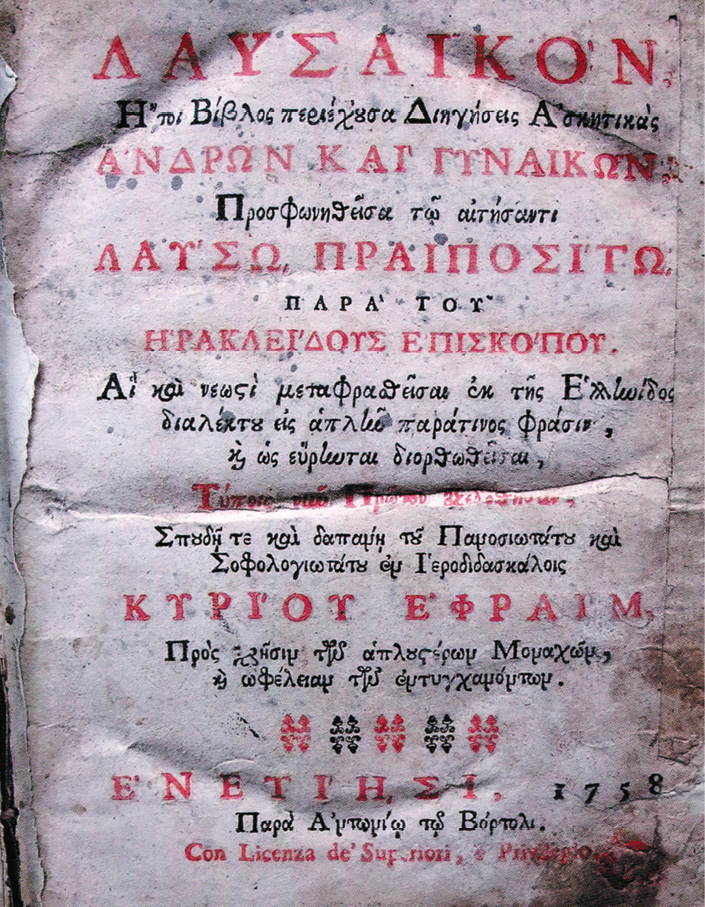 ΛΑΥΣΑΪΚΟ'Ν,
Η῎τοι Βίβλος περιέχουσα Διηγήσεις Α᾿σκητικὰς
Α᾿ΝΔΡΩ῀Ν ΚΑΙ' ΓΥΝΑΙΚΩ῀Ν,
Προσφωνηθεῖσα τῷ αἰτήσαντι
ΛΑΥ'ΣΩ, ΠΡΑΙΠΟΣΙ'ΤΩ,
ΠΑΡΑ' ΤΟΥ῀
Η῾ΡΑΚΛΕΙ'ΔΟΥΣ ΕΠΙΣΚΟ'ΠΟΥ.
Αἳ καὶ νεωςὶ μεταφραθεῖσαι ἐκ τῆς Ε῾λλωίδος
διαλέκτου εἰς ἁπλὴν παράτινος φράσιν,
καὶ ὡς εὕρηνται διορθωθεῖσαι,
Τύποις νῦν Πρῶτον
Σπουδῇ τε καὶ δαπάνῃ τοῦ Πανοσιωτάτου καὶ
Σοφολογιωτάτου ἐν Ἱεροδιδασκάλοις
ΚΥΡΙ'ΟΥ Ε᾿ΦΡΑΙ'Μ,
Πρὸς χρῆσιν τῶν ἁπλουςέρων Μοναχῶν,
καὶ ὠφέλειαν τῶν ἐντυγχανόντων.
Ε᾿ΝΕΤΙ'ΗΣΙ, 1758
Παρὰ Α᾿ντωνίῳ τῷ Βόρτολι.
Con Licenza de' Superiori, e Privilegio.